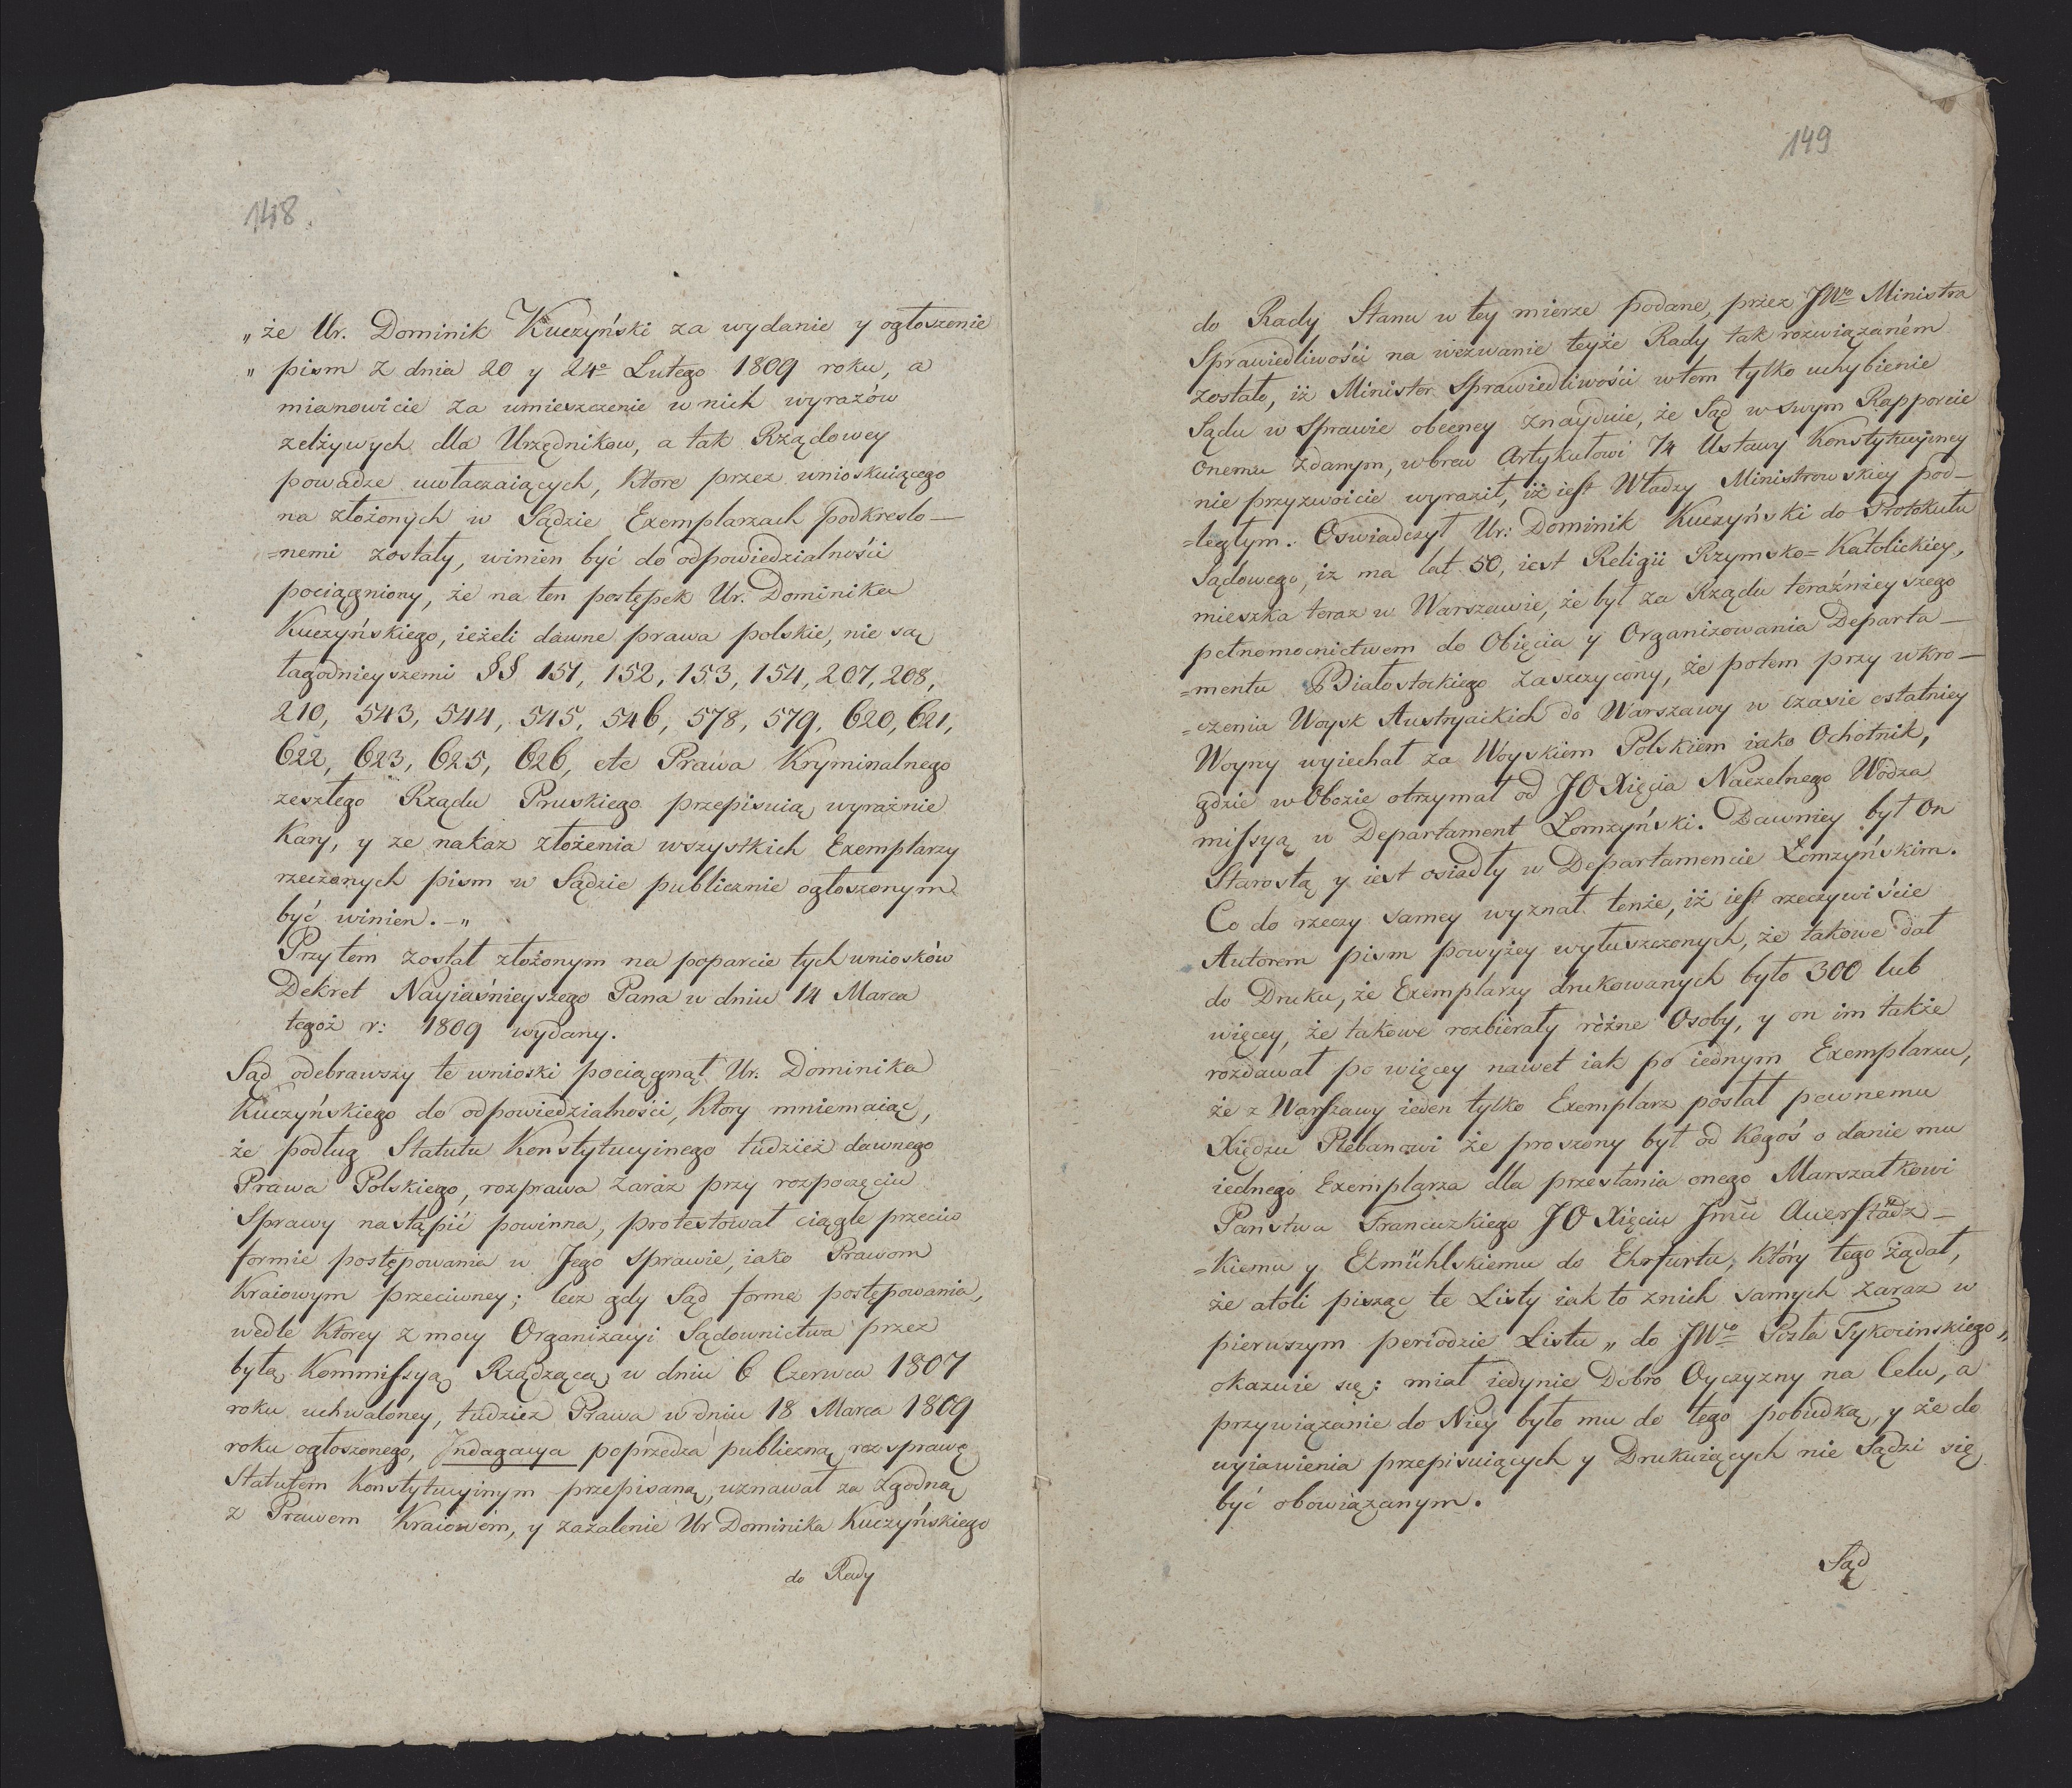 148.
„ że Ur. Dominik Kuczyński za wydanie y ogłoszenie
„ pism z dnia 20 y 24º Lutego 1809 roku, a
mianowicie za umieszczenie w nich wyrazów
zelżywych dla Urzędnikow, a tak Rządowey
powadze uwłaczaiących, które przez wnioskuiącego
na złożonych w Sądzie Exemplarzach podkreślo—
=nemi zostały, winien być do odpowiedzialności
pociągniony, że na ten postępek Ur. Dominika
Kuczyńskiego, ieżeli dawne prawa polskie, nie są
łagodnieyszemi §§ 151, 152, 153, 154, 207, 208,
210, 543, 544, 545, 546, 578, 579, 620, 621,
622, 623, 625, 626, etc Prawa Kryminalnego
zeszłego Rządu Pruskiego przepisuią wyraźnie
Kary, y ze nakaz złożenia wszystkich Exemplarzy
rzeczonych pism w Sądzie publicznie ogłoszonym
być winien. – „
Przytém został złożonym na poparcie tych wniosków
Dekret Nayiaśnieyszego Pana w dniu 14 Marca
tegoż r: 1809 wydany.
Sąd odebrawszy te wnioski pociągnął Ur. Dominika
Kuczyńskiego do odpowiedzialności, który mniemaiąc,
że podług Statutu Konstytucyinego tudzież dawnego
Prawa Polskiego, rozprawa zaraz przy rozpoczęciu
Sprawy nastąpić powinna, protestował ciągle przeciw
formie postępowania w Jego sprawie, iako Prawom
Kraiowym przeciwney; lecz gdy Sąd formę postępowania,
wedle którey z mocy Organizacyi Sądownictwa przez
byłą Kommissyą Rządzącą w dniu 6 Czerwca 1807
roku uchwaloney, tudzież Prawa w dniu 18 Marca 1809
roku ogłoszonego, Indagacya poprzedza publiczną rozsprawę
Statutem Konstytucyinym przepisaną, uznawał za zgodną
z Prawem Kraiowém, y zażalenie Ur Dominika Kuczyńskiego
do Rady
149
do Rady Stanu w tey mierze podane, przez JWº Ministra
Sprawiedliwości na wezwanie teyże Rady tak rozwiązaném
zostało, iż Minister Sprawiedliwości w tem tylko uchybienie
Sądu w Sprawie obecney znayduie, że Sąd w swym Rapporcie
onemu zdanym, wbrew Artykułowi 74 Ustawy Konstytucyiney
nie przyzwoicie wyraził, iż iest Władzy Ministrowskiey pod—
=ległym. Oswiadczył Ur: Dominik Kuczyński do Protokułu
Sądowego, iz ma lat 50, iest Religii Rzymsko=Katolickiey,
mieszka teraz w Warszawie, że był za Rządu teraźnieyszego
pełnomocnictwem do Obięcia y Organizowania Departa—
=mentu Białostockiego zaszczycony, że potem przy wkro—
=czeniu Woysk Austryackich do Warszawy w czasie ostatniey
Woyny wyiechał za Woyskiem Polskiem iako Ochotnik,
gdzie w Obozie otrzymał od JO Xięcia Naczelnego Wodza
missyą w Departament Łomzyński. Dawniey był On
Starostą y iest osiadły w Departamencie Łomzyńskim.
Co do rzeczy samey wyznał tenże, iż iest rzeczywiście
Autorem pism powyżey wyłuszczonych, że takowe dał
do Druku, że Exemplarzy drukowanych było 300 lub
więcey, że takowe rozbierały różne Osoby, y on im także
rozdawał po więcey nawet iak po iednym Exemplarzu,
że z Warszawy ieden tylko Exemplarz posłał pewnemu
Xiędzu Plebanowi że proszony był od Kogoś o danie mu
iednego Exemplarza dla przesłania onego Marszałkowi
Państwa Francuzkiego JO Xięciu Jmu Auerstädz—
=kiemu y Ekmühlskiemu do Ehrfurtu, który tego żądał,
że atoli pisząc te Listy iak to z nich samych zaraz w
pierwszym periodzie Listu „ do JWº Posła Tykocinskiego „
okazuie się: miał iedynie Dobro Oyczyzny na Celu, a
przywiązanie do Niey było mu do tego pobudką, y że do
wyiawienia przepisuiących y Drukuiących nie Sądzi się
być obowiązanym.
Sąd